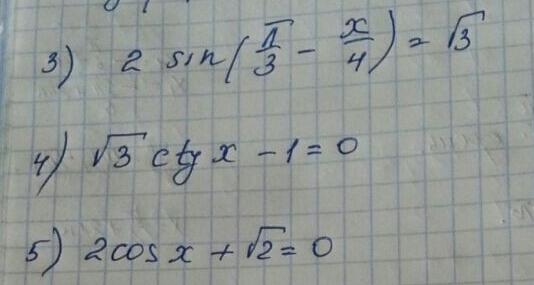 3) 2 sin(π/3 - x/4) = √3
4) √3 ctg x - 1 = 0
5) 2cos x + √2 = 0